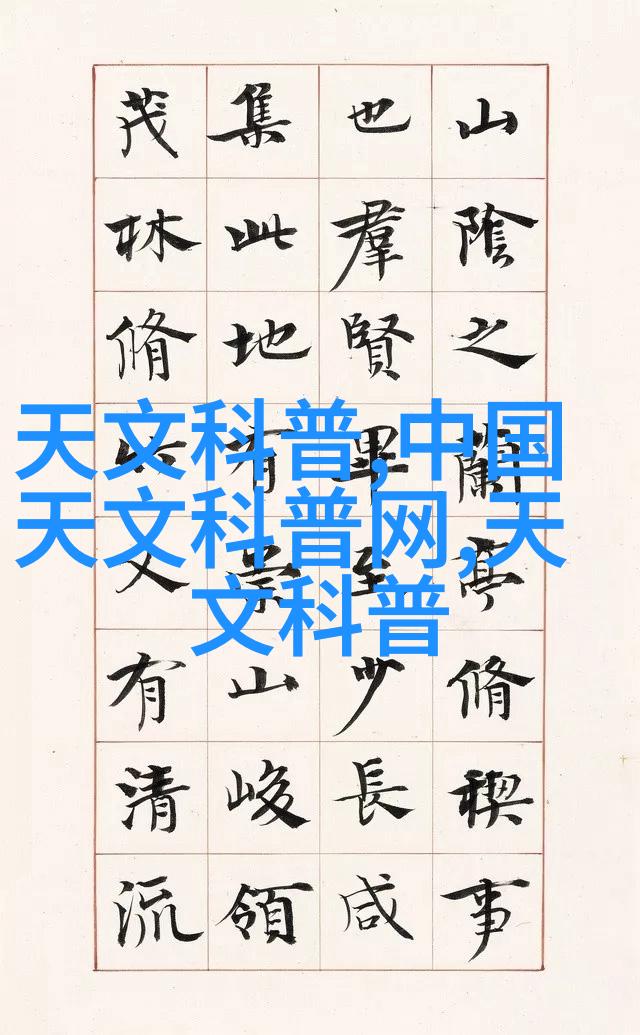 山陰之蘭亭脩稧事
也羣賢畢至少長咸
集此地有崇山峻領
茂林脩竹又有清流
天文科普,中国
天文科普网,天
文科普